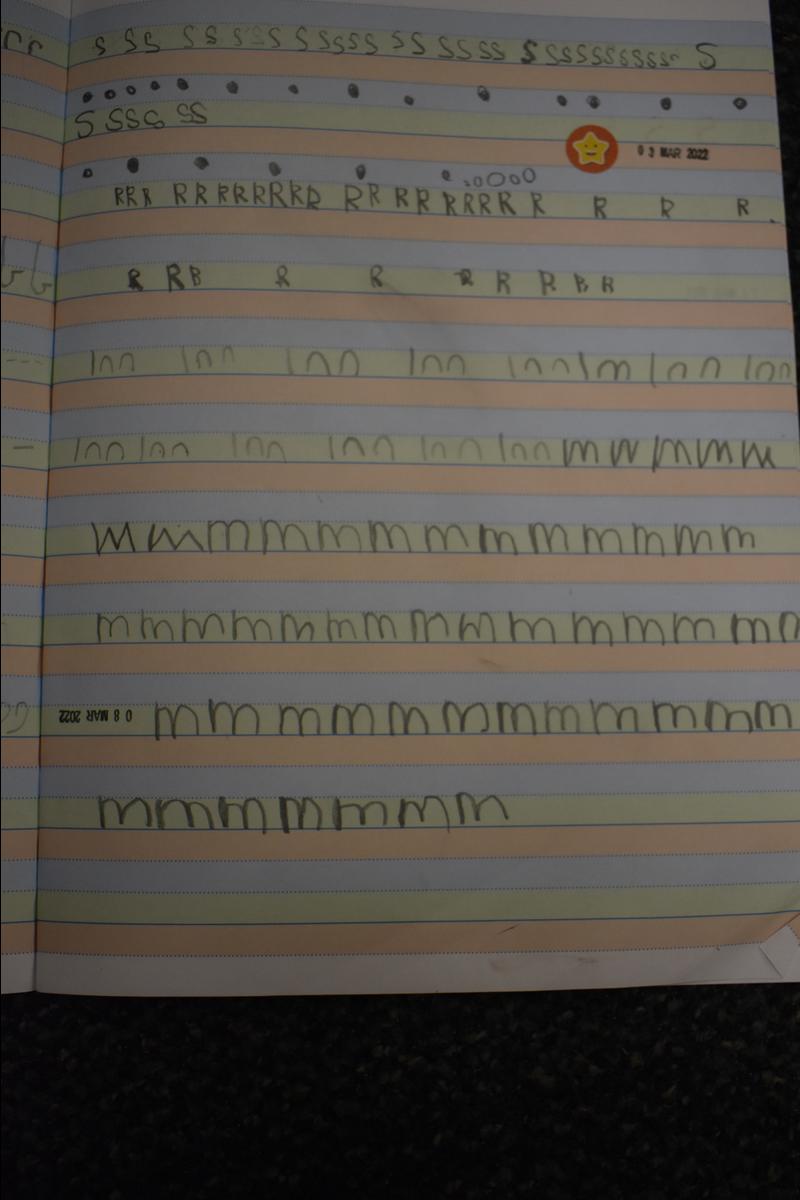 rr s ss ss ss s ssss ss ssss s sssssssss s
s sss ss
03 MAR 2022
RRR RR RRRRRRR RR RR RRRR R R R R.
R RB R R R R R R R
lnn lnn lnn lnn lnn lm lnn lnn
lnn lnn lnn lnn lnn lnn m w m m m
m m m m m m m m m m m m m
m m m m m m m m m m m m m m
08 MAR 2022 m m m m m m m m m m m m
m m m m m m m